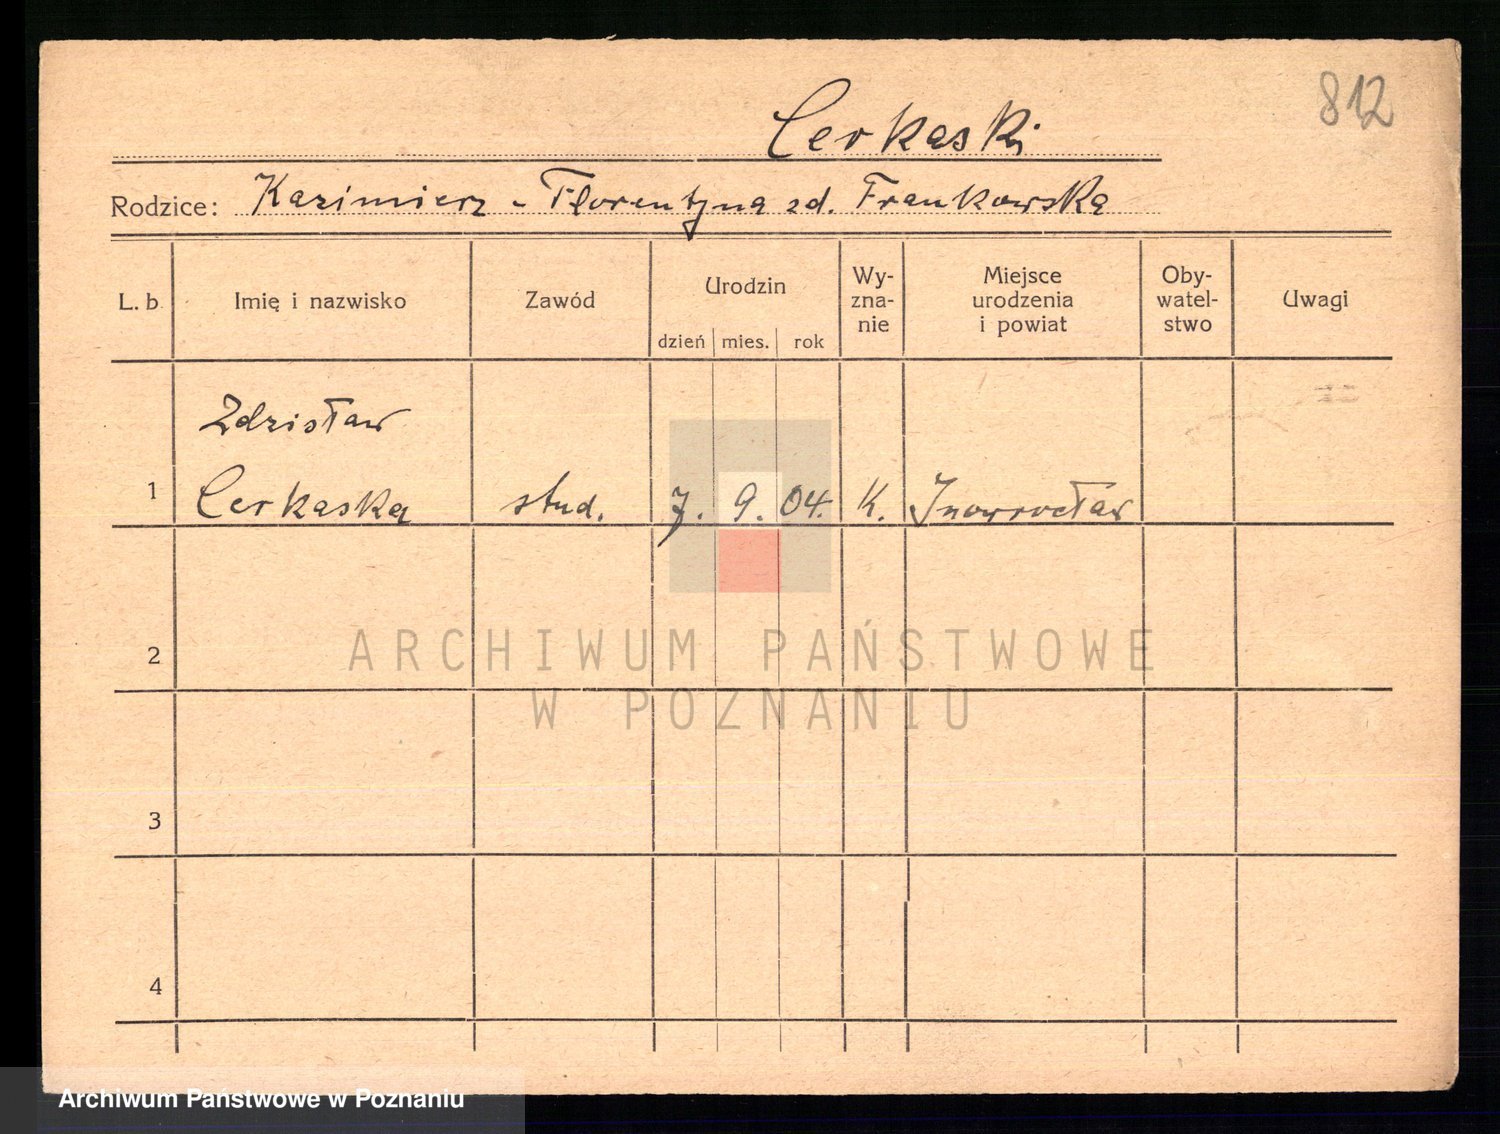 812
Cerkaski
Rodzice: Kazimierz - Florentyna zd. Frankowska
L. b. Imię i nazwisko Zawód Urodzin dzień mies. rok Wy-zna-nie Miejsce urodzenia i powiat Oby-watel-stwo Uwagi
Zdzisław
1 Cerkaska stud. 7. 9. 04. K. Inowrocław
2
ARCHIWUM PAŃSTWOWE
W POZNANIU
3
4
Archiwum Państwowe w Poznaniu